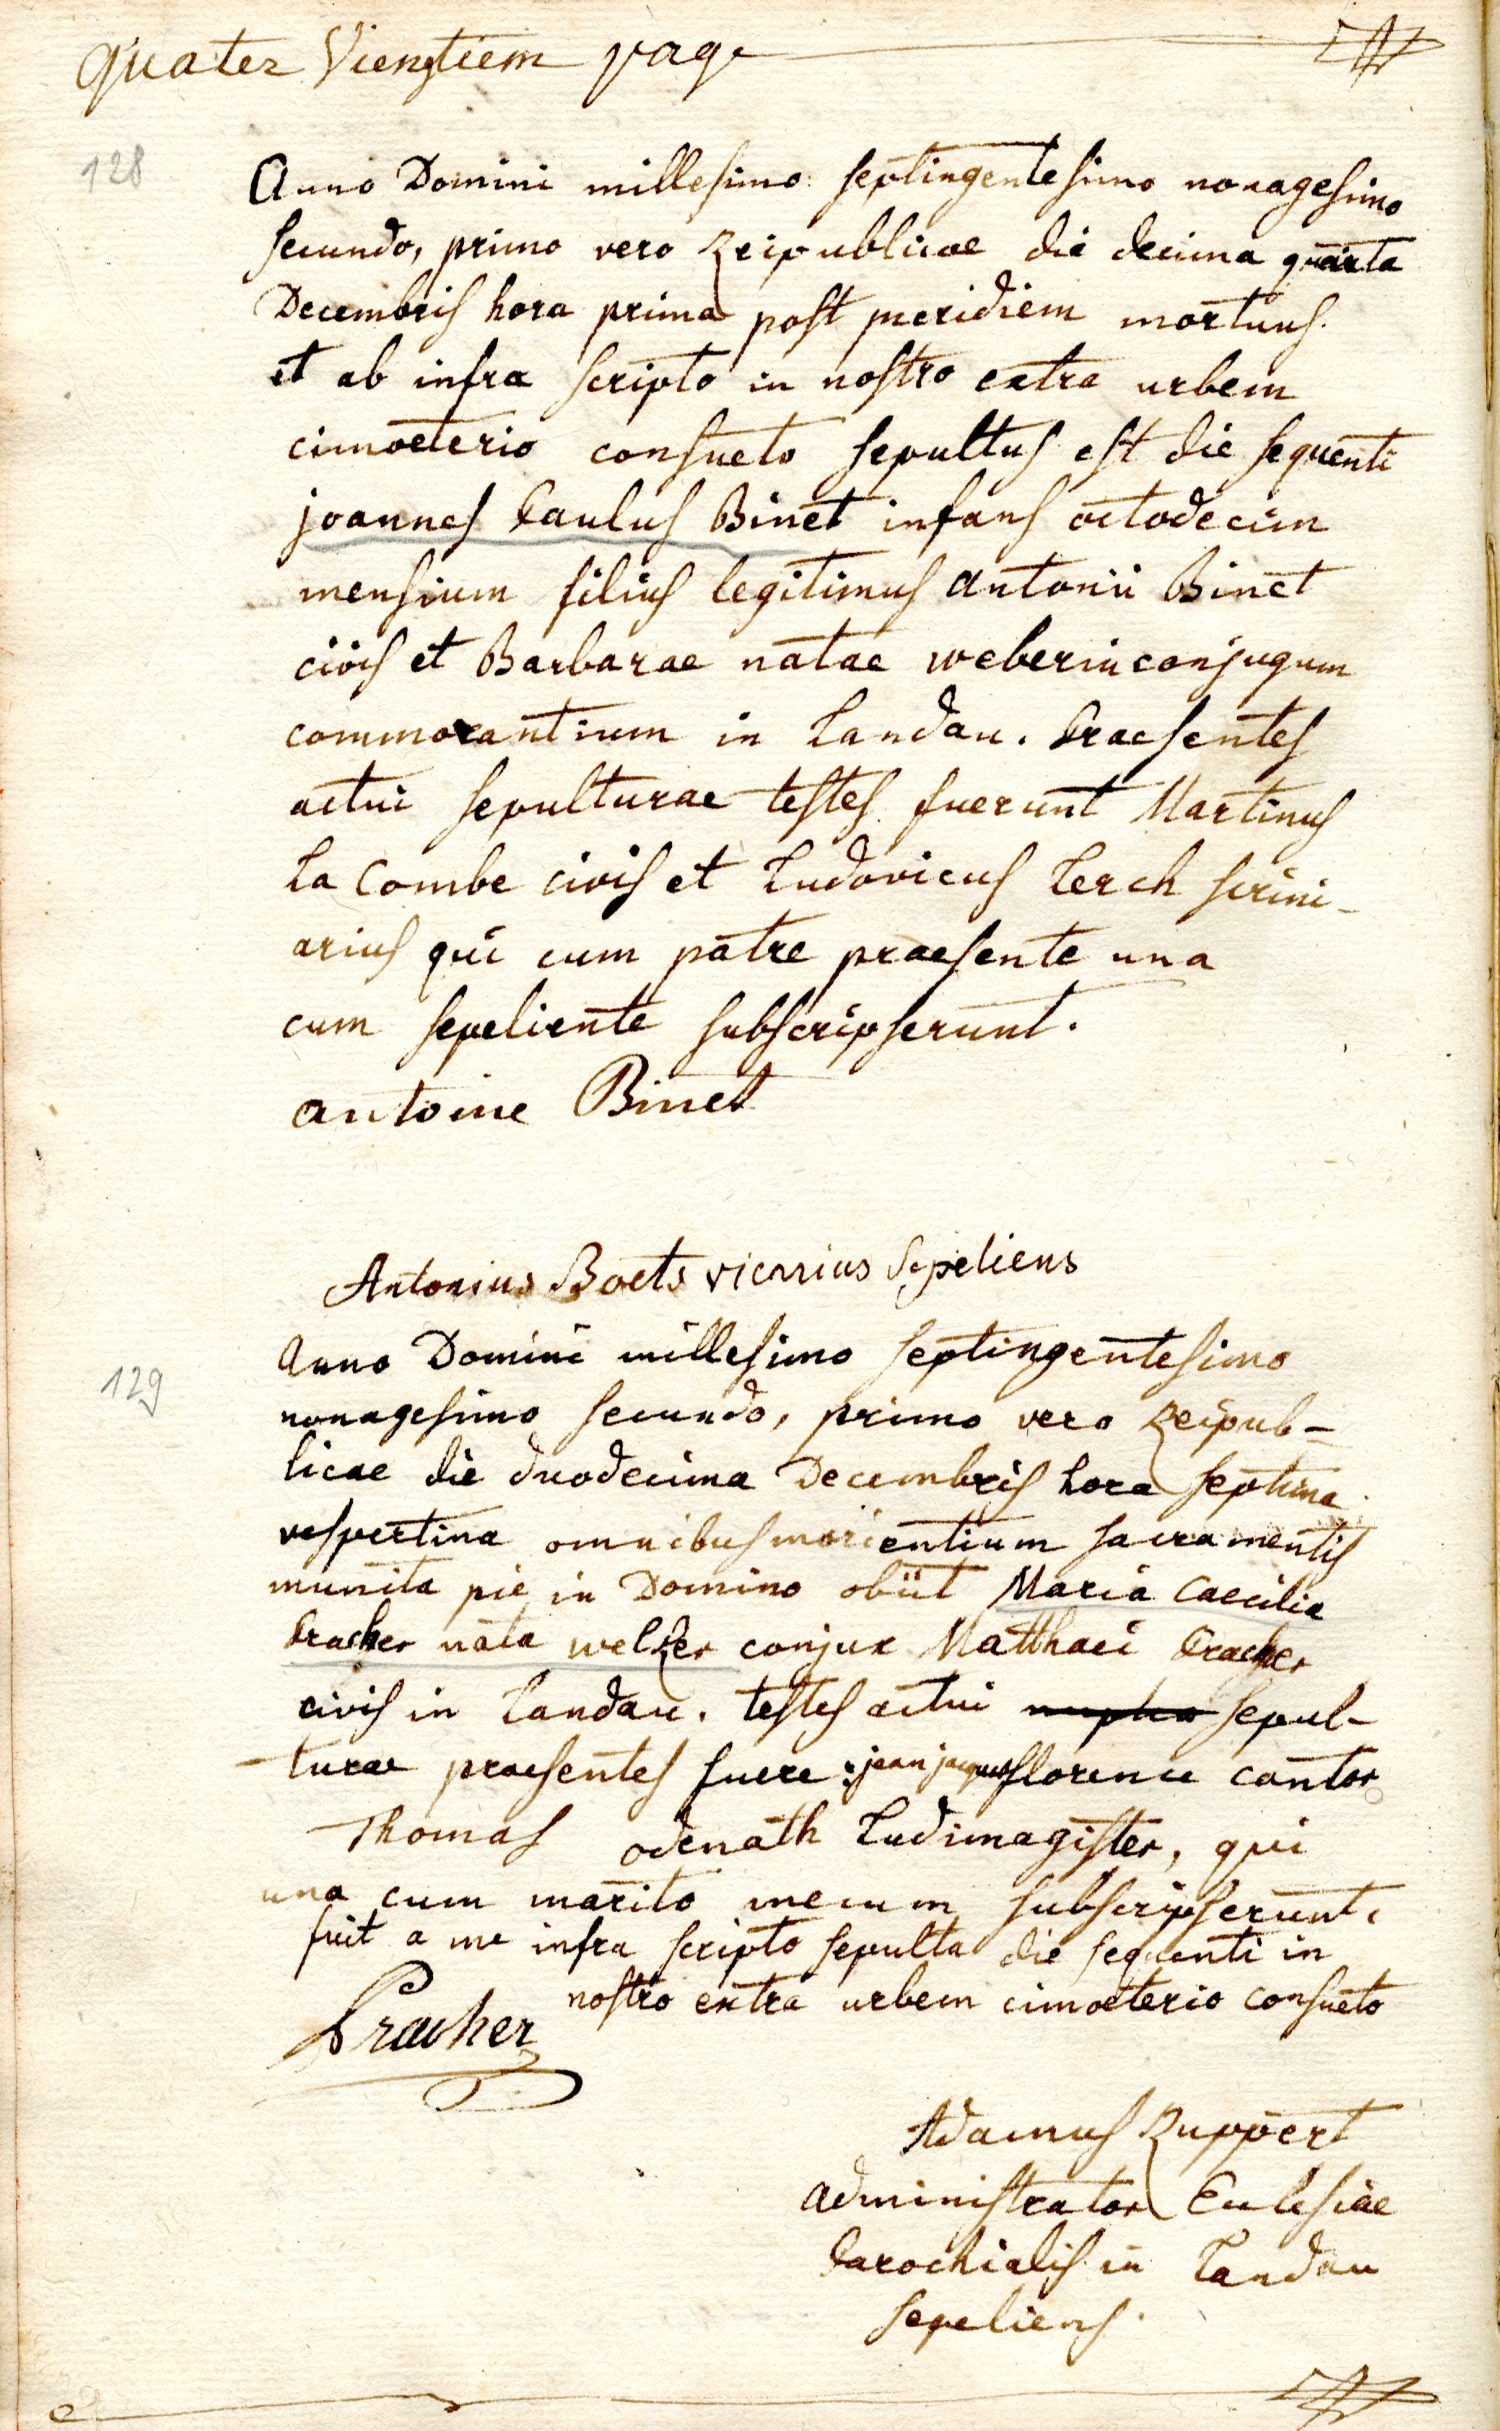 quater Viengtiem page
128
Anno Domini millesimo septingentesimo nonagesimo
secundo, primo vero Reipublicae die decima quarta
Decembris hora prima post meridiem mortuus
et ab infra scripto in nostro extra urbem
cimoeterio consueto sepultus est die sequenti
joannes Paulus Binet infans octodecim
mensium filius legitimus Antonii Binet
civis et Barbarae natae weberin conjugum
commorantium in Landau. Praesentes
actui sepulturae testes fuerunt Martinus
La Combe civis et Ludovicus Lerch scrini-
arius qui cum patre praesente una
cum sepeliente subscripserunt.
antoine Binet
Antonius Boets vicarius Sepeliens
129
Anno Domini millesimo septingentesimo
nonagesimo secundo, primo vero Reipub-
licae die duodecima Decembris hora septima
vespertina omnibus morientium sacramentis
munita pie in Domino obiit Maria Caecilia
Pracher nata welker conjux Matthaei Pracher
civis in Landau. testes actui sepul-
turae praesentes fuere: jean jacques florence cantor
Thomas odenath Ludimagister, qui
una cum marito mecum subscripserunt.
fuit a me infra scripto sepulta die sequenti in
nostro extra urbem cimoeterio consueto
Pracher
Adamus Ruppert
Administrator Ecclesiae
Parochialis in Landau
sepeliens.